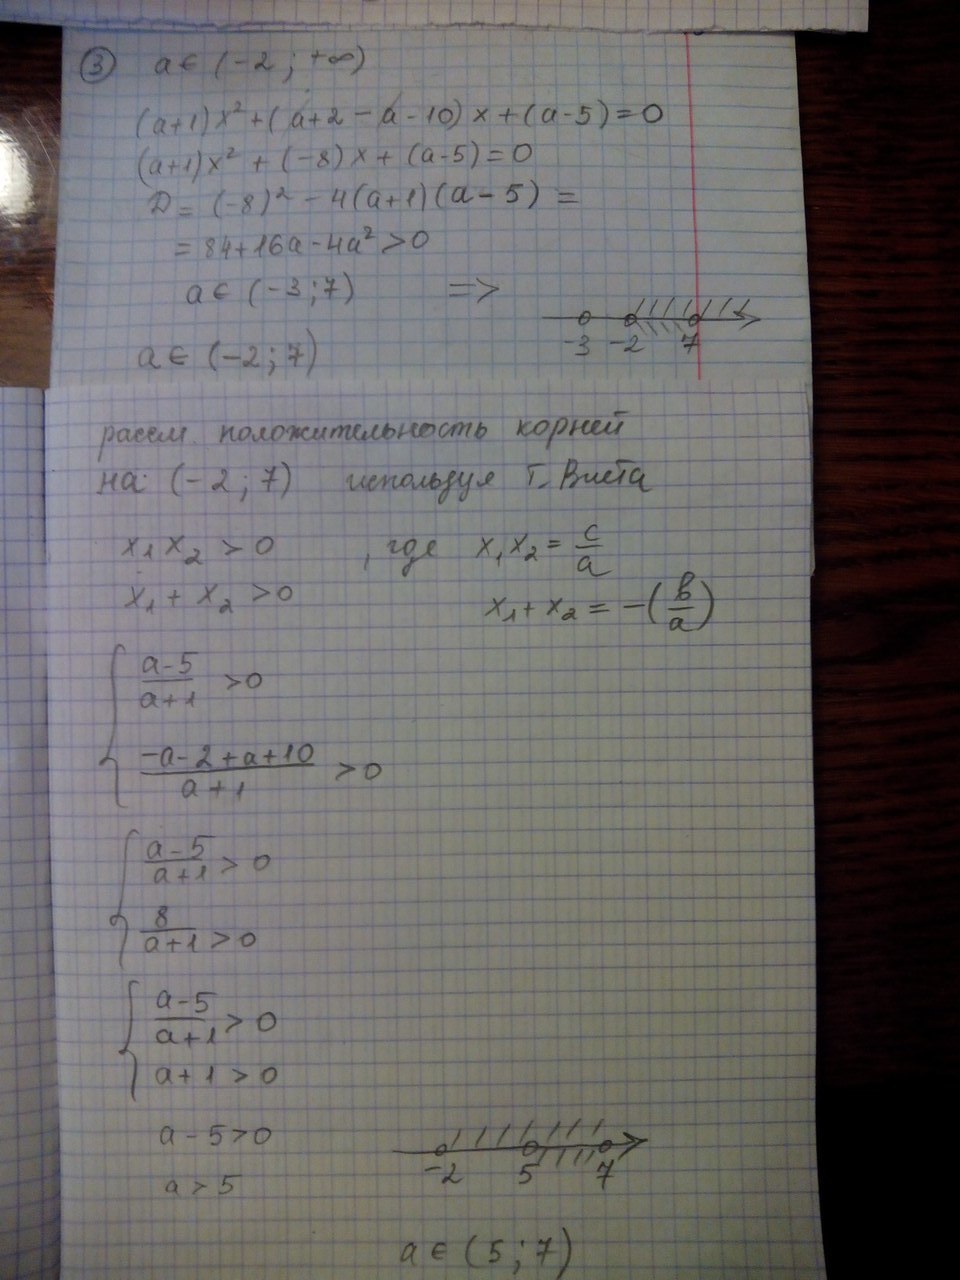 ③ a ∈ (-2 ; +∞)
(a+1)x² + (a+2 - a - 10) x + (a-5) = 0
(a+1)x² + (-8) x + (a-5) = 0
D = (-8)² - 4(a+1)(a-5) =
= 84+16a-4a² > 0
a ∈ (-3 ; 7) =>
-3 -2 7
a ∈ (-2 ; 7)
рассм. положительность корней
на (-2 ; 7) используя т. Виета
x₁ x₂ > 0 , где x₁x₂ = c/a
x₁ + x₂ > 0 x₁ + x₂ = -(b/a)
{ (a-5)/(a+1) > 0
(-a-2+a+10)/(a+1) > 0
{ (a-5)/(a+1) > 0
8/(a+1) > 0
{ (a-5)/(a+1) > 0
a+1 > 0
a - 5 > 0
-2 5 7
a > 5
a ∈ (5 ; 7)